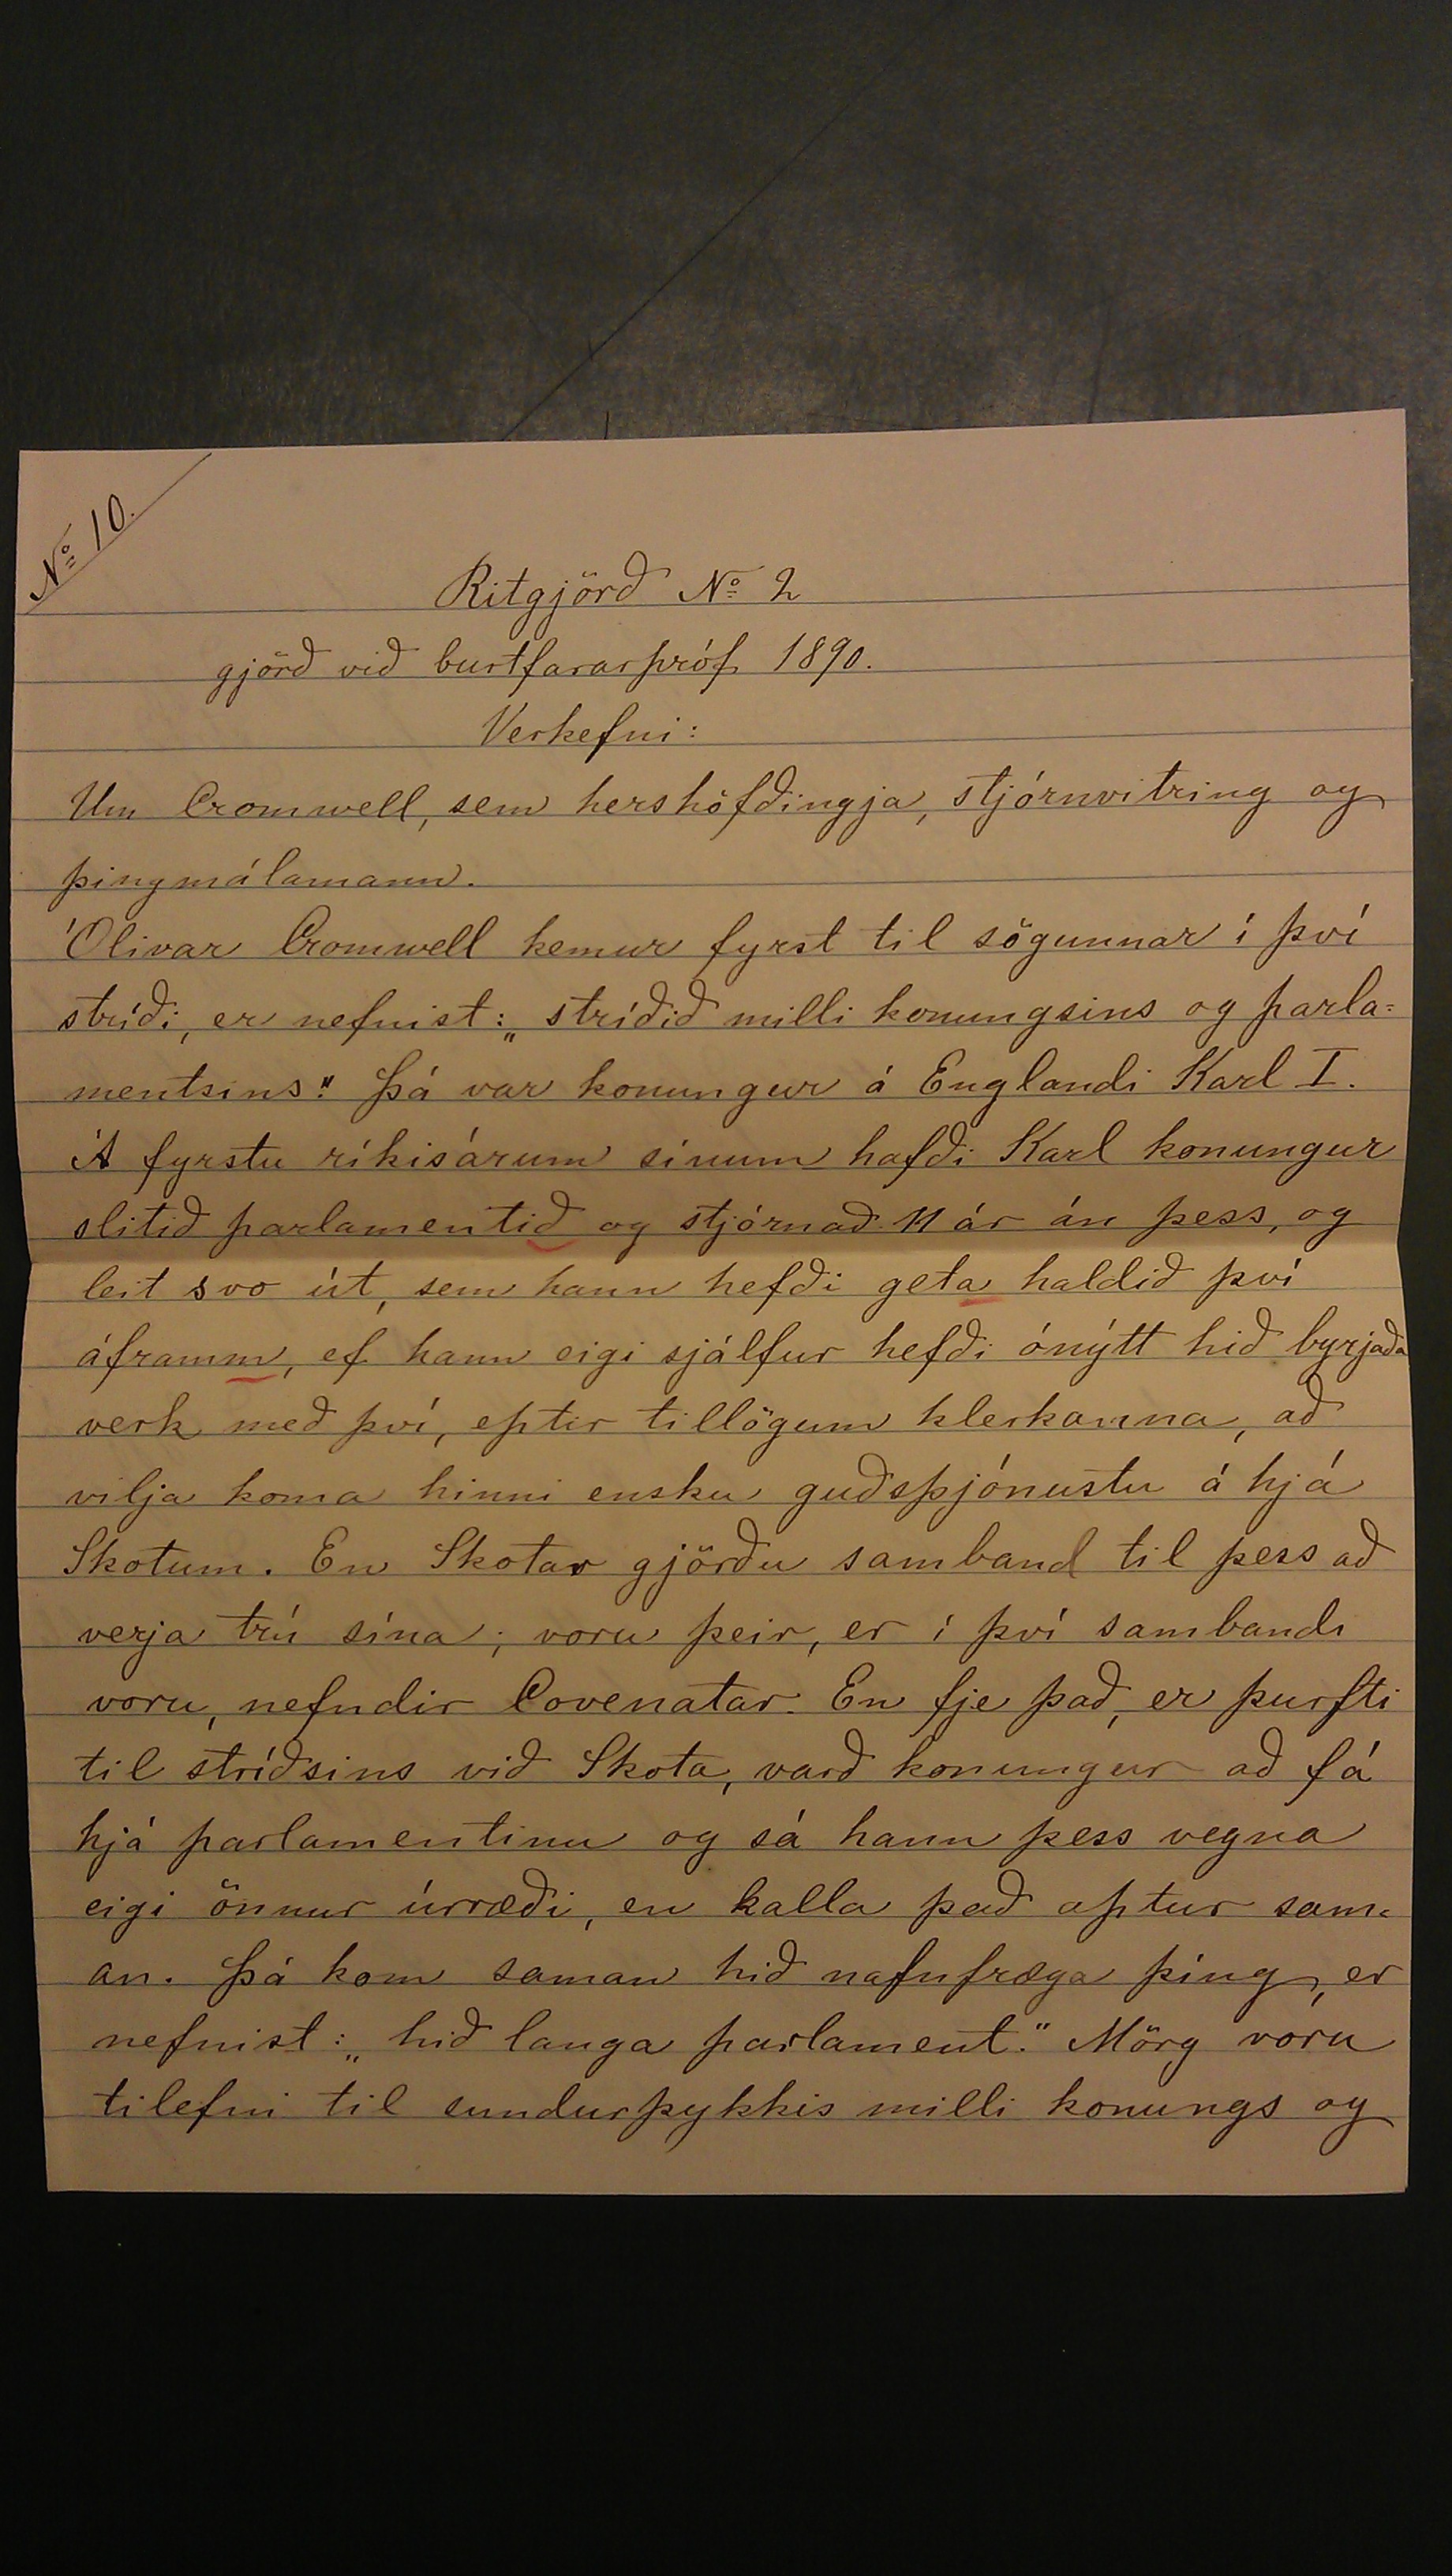 No 10.
Ritgjörð No 2
gjörð við burtfararpróf 1890.
Verkefni:
Um Cromwell, sem hershöfðingja, stjórnvitring og
þingmálamann.
Ólivar Cromwell kemur fyrst til sögunnar í því
stríði, er nefnist: „stríðið milli konungsins og parla=
mentsins". Þá var konungur á Englandi Karl I.
Á fyrstu ríkisárum sínum hafði Karl konungur
slitið parlamentið og stjórnað 11 ár án þess, og
leit svo út, sem hann hefði geta haldið því
áframm, ef hann eigi sjálfur hefði ónýtt hið byrjaða
verk með því, eptir tillögum klerkanna, að
vilja koma hinni ensku guðsþjónustu á hjá
Skotum. En Skotar gjörðu samband til þess að
verja trú sína; voru þeir, er í því sambandi
voru, nefndir Covenatar. En fje það, er þurfti
til stríðsins við Skota, varð konungur að fá
hjá parlamentinu og sá hann þess vegna
eigi önnur úrræði, en kalla það aptur sam=
an. Þá kom saman hið nafnfræga þing, er
nefnist: „hið langa parlament." Mörg voru
tilefni til sundurþykkis milli konungs og